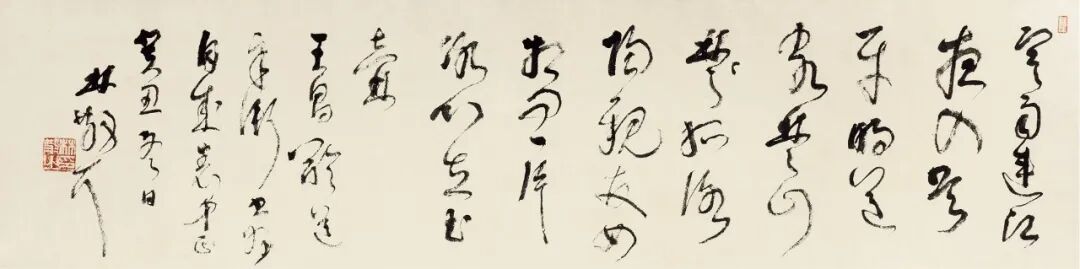 寒雨連江
夜入吳
平明送
客楚山
楚孤洛
陽親友如
相問一片
冰心在玉
壺
王昌齡送
辛漸
自成
癸丑冬日
林散耳